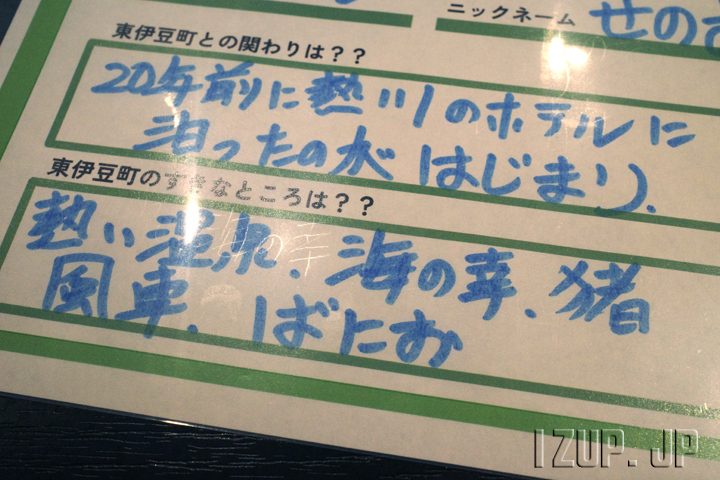 ニックネーム せのさ
東伊豆町との関わりは??
20年前に熱川のホテルに
泊ったのが はじまり.
東伊豆町のすきなところは??
熱い温泉、海の幸、猪
風車、ばにお
IZUP.JP